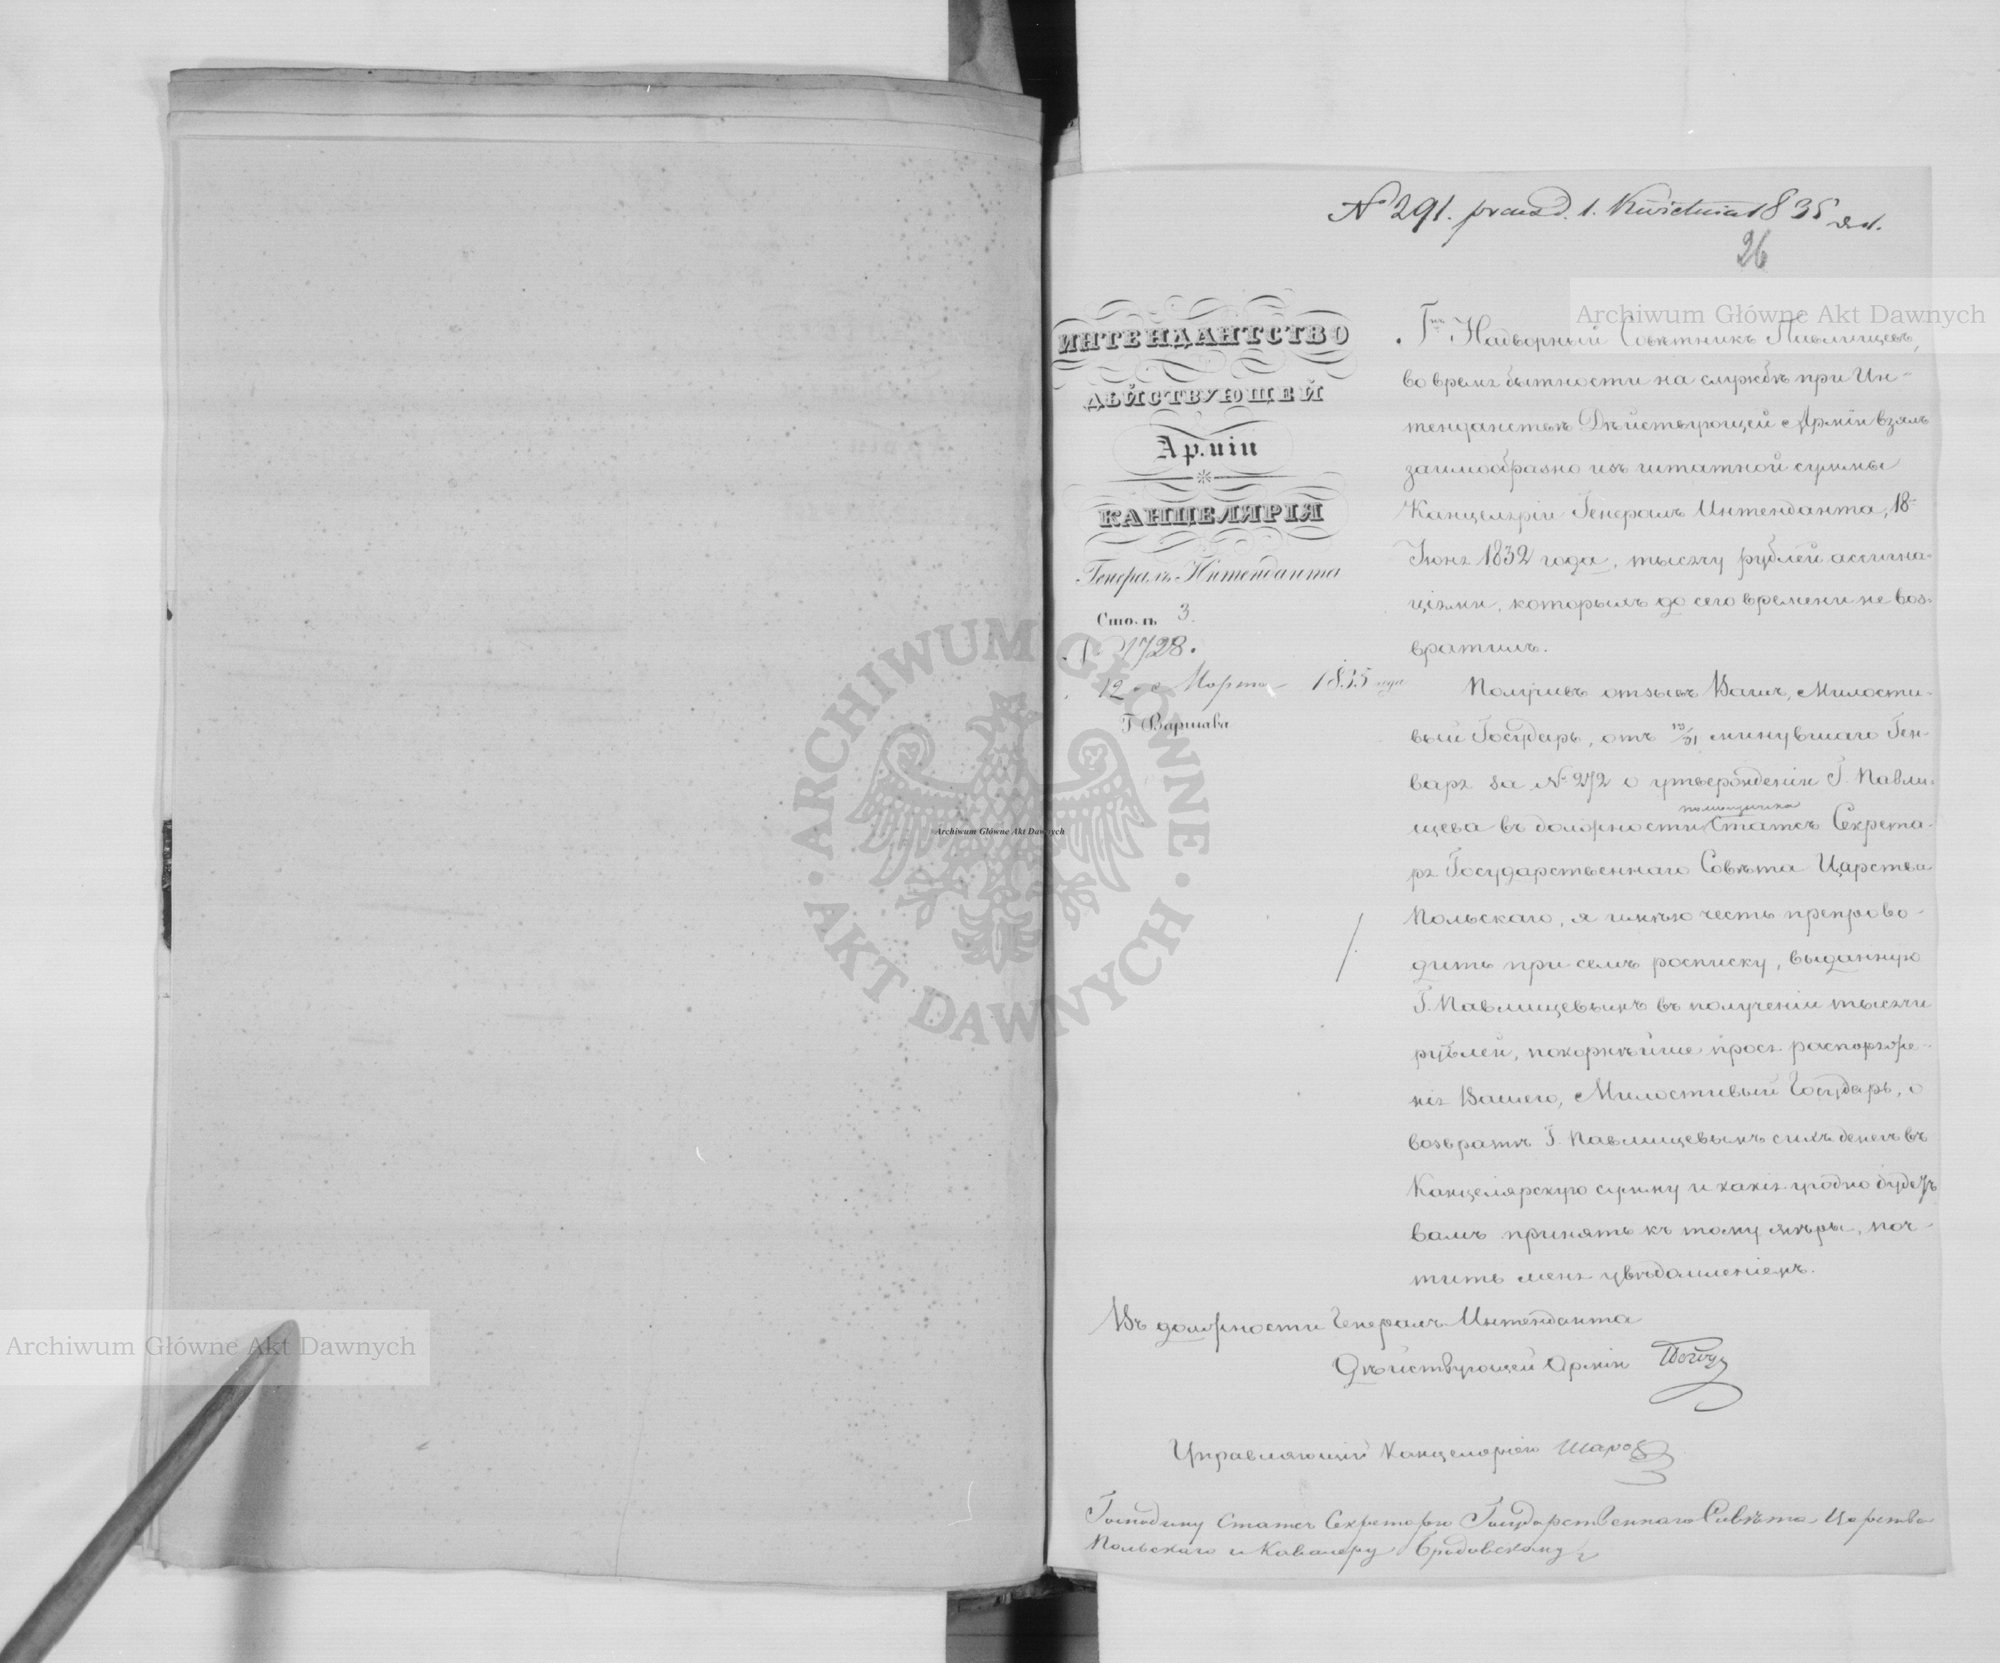 № 291. praes d. 1. Kwietnia 1835
26
ИНТЕНДАНТСТВО
ДѢЙСТВУЮЩЕЙ
Арміи
КАНЦЕЛЯРІЯ
Генералъ Интенданта
Столъ 3.
№ 1728.
12 Марта 1835 года
Г Варшава
Гнъ Надворный Совѣтникъ Павлищевъ,
во время бытности на службѣ при Ин-
тендантствѣ Дѣйствующей Арміи взялъ
заимообразно изъ штатной суммы
Канцеляріи Генералъ Интенданта, 18-
Іюня 1832 года, тысячу рублей ассигна-
ціями, которыхъ до сего времени не воз-
вратилъ.
Получивъ отзывъ Вашъ, Милости-
вый Государь, отъ 19/31 минувшаго Ген-
варя за № 272 о утвержденіи Г. Павли-
щева въ должности помощника Статсъ Секрета-
ря Государственнаго Совѣта Царства
Польскаго, я имѣю честь препрово-
дить при семъ росписку, выданную
Г. Павлищевымъ въ полученіи тысячи
рублей, покорнѣйше прося распоряже-
нія Вашего, Милостивый Государь, о
возвратѣ Г. Павлищевымъ сихъ денегъ въ
Канцелярскую сумму и какія угодно будетъ
вамъ принять къ тому мѣры, поч-
тить меня увѣдомленіемъ.
Въ должности Генералъ Интенданта
Дѣйствующей Арміи
Управляющій Канцеляріею
Господину Статсъ Секретарю Государственнаго Совѣта Царства
Польскаго и Кавалеру Бродовскому
Archiwum Główne Akt Dawnych
Archiwum Główne Akt Dawnych
Archiwum Główne Akt Dawnych
ARCHIWUM GŁÓWNE · AKT DAWNYCH ·